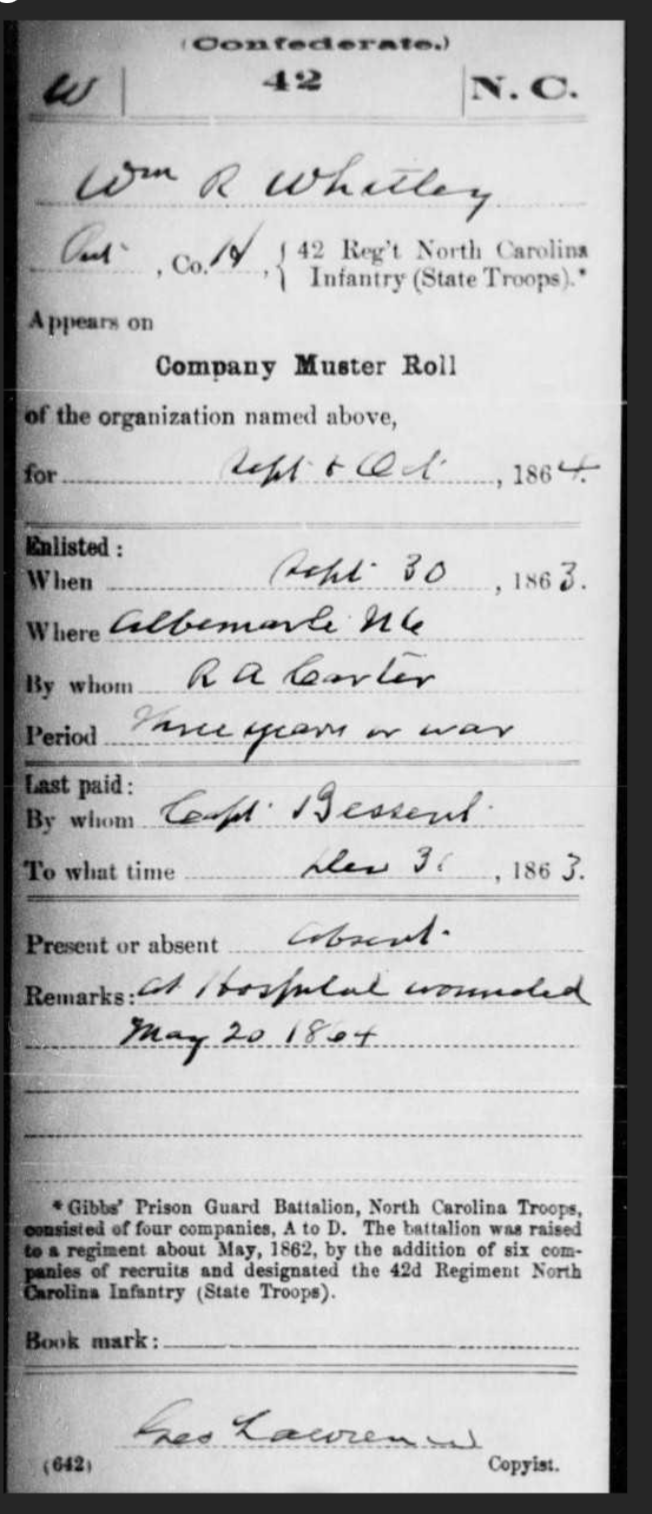 (Confederate.)
W | 42 | N. C.
Wm R Whitley
Pvt , Co. H , { 42 Reg't North Carolina
Infantry (State Troops).*
Appears on
Company Muster Roll
of the organization named above,
for Sept & Oct , 1864.
Enlisted :
When Sept 30 , 1863.
Where Albemarle NC
By whom R A Carter
Period Three years or war
Last paid :
By whom Capt Bessent
To what time Dec 31 , 1863.
Present or absent Absent
Remarks: At Hospital wounded
May 20 1864
* Gibbs' Prison Guard Battalion, North Carolina Troops,
consisted of four companies, A to D. The battalion was raised
to a regiment about May, 1862, by the addition of six com-
panies of recruits and designated the 42d Regiment North
Carolina Infantry (State Troops).
Book mark :
Lawrence
(642) Copyist.